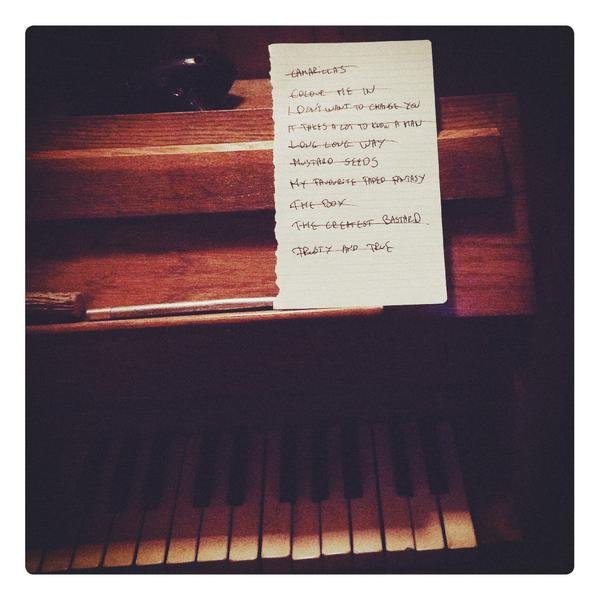 CAMARILLAS
COLOUR ME IN
I DON'T WANT TO CHANGE YOU
IT TAKES A LOT TO KNOW A MAN
LONG LONG WAY
MUSTARD SEEDS
MY FAVOURITE FADED FANTASY
THE BOX
THE GREATEST BASTARD
TRUSTY AND TRUE